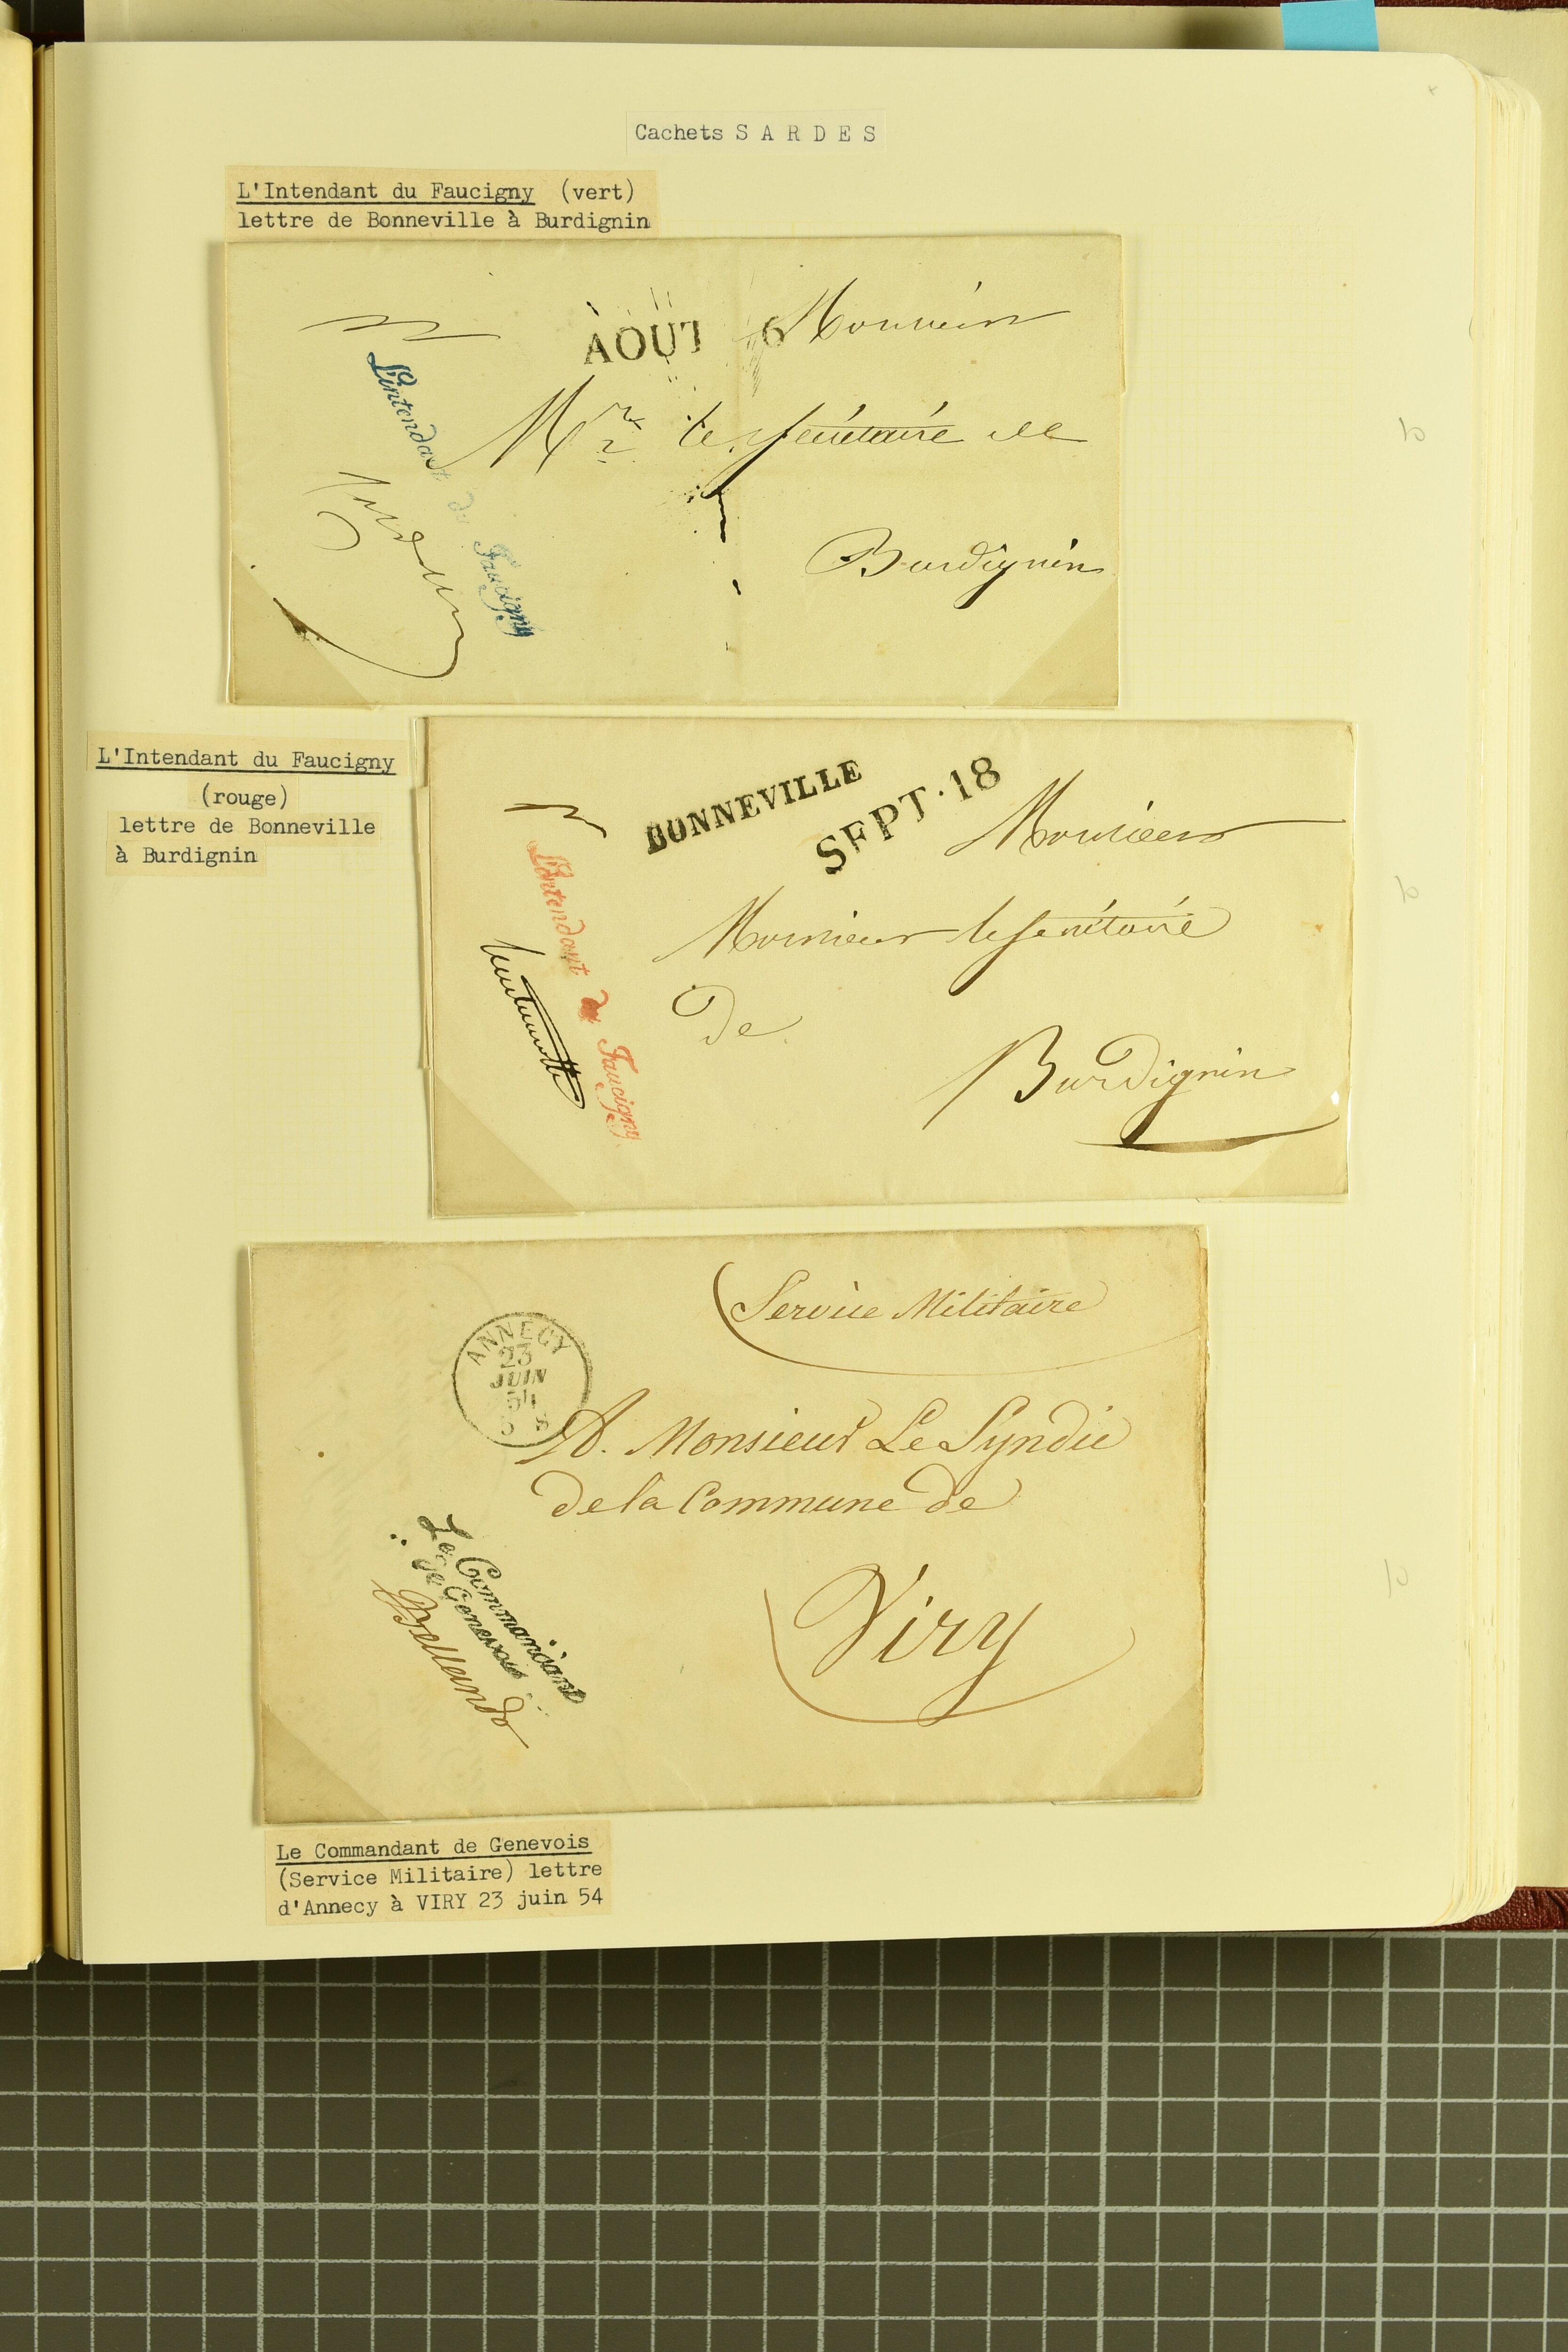 Cachets S A R D E S
L'Intendant du Faucigny (vert)
lettre de Bonneville à Burdignin
AOUT 6 Monsieur
L'intendant du Faucigny
Mr le Secrétaire de
Burdignin
L'Intendant du Faucigny
(rouge)
lettre de Bonneville
à Burdignin
BONNEVILLE
SEPT. 18
Monsieur
L'intendant du Faucigny
Monsieur le Secrétaire
De
Burdignin
Service Militaire
ANNECY
23
JUIN
54
A. Monsieur Le Syndic
de la Commune de
Viry
Le Commandant
de Genevois
Bellando
Le Commandant de Genevois
(Service Militaire) lettre
d'Annecy à VIRY 23 juin 54